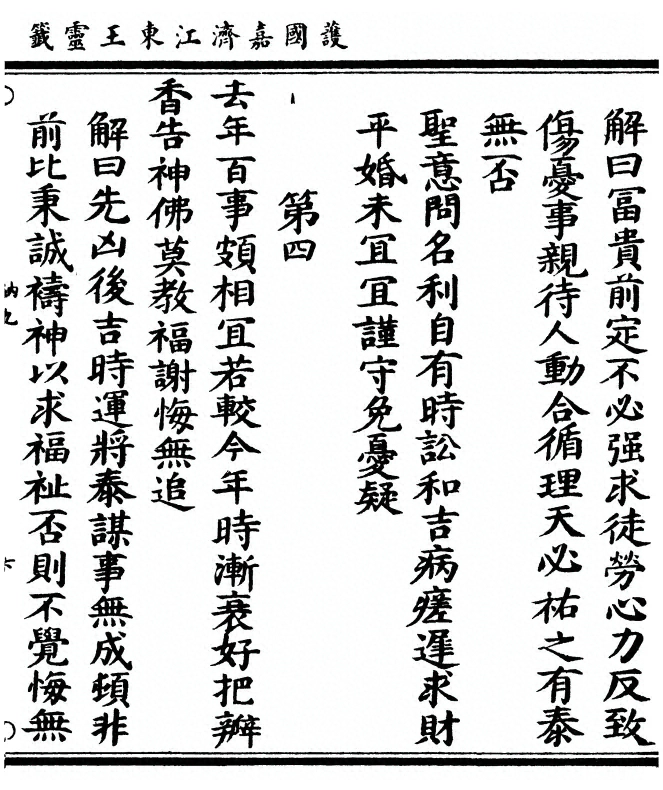 護國嘉濟江東王靈籤
解曰冨貴前定不必强求徒勞心力反致
傷憂事親待人動合循理天必祐之有泰
無否
聖意問名利自有時訟和吉病瘥遲求財
平婚未冝冝謹守免憂疑
第四
去年百事頗相冝若較今年時漸衰好把辦
香告神佛莫教福謝悔無追
解曰先凶後吉時運將泰謀事無成頓非
前比秉誠禱神以求福祉否則不覺悔無